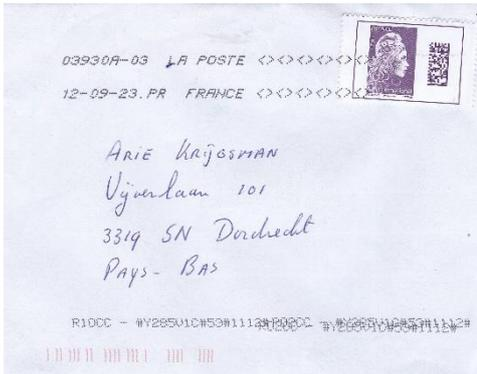 03930A-03 LA POSTE <><><><><><>
12-09-23.PR FRANCE <><><><><><>
ARIE KRIJGSMAN
Vijverlaan 101
3319 SN Dordrecht
PAYS-BAS
R10CC - #Y285V1C#53#1112#